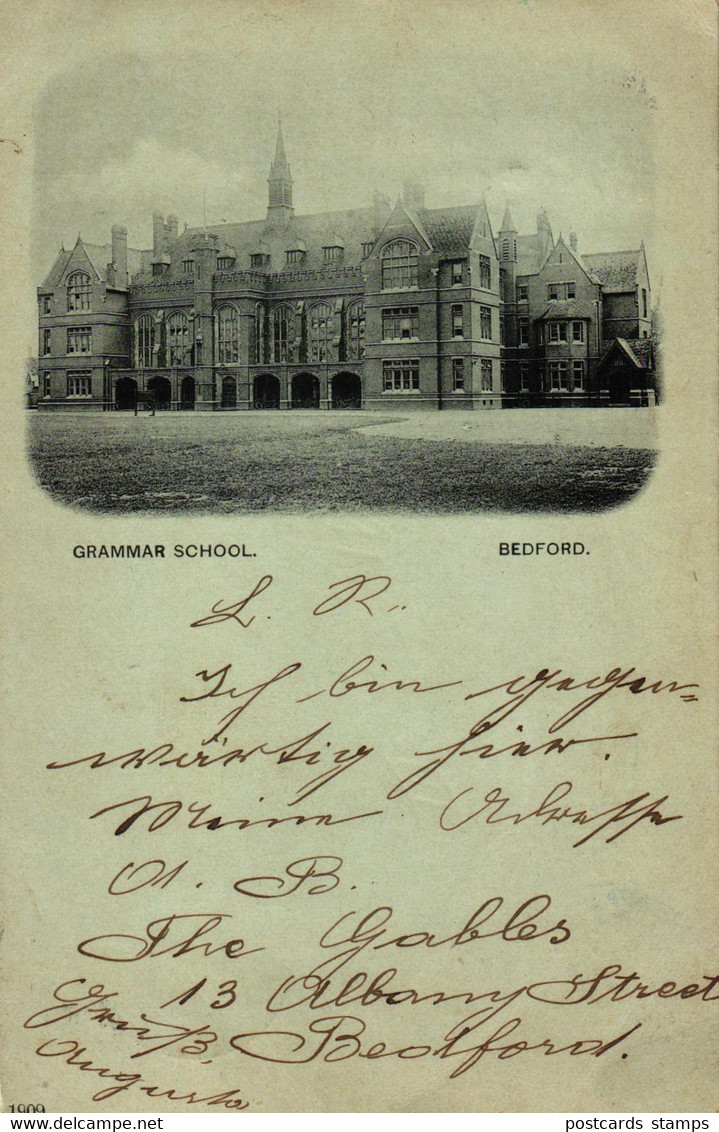 GRAMMAR SCHOOL. BEDFORD.
L. R.
Ich bin gegen=
wärtig hier.
Meine Adresse
A. B.
The Gables
13 Albany Street
Bedford.
Gruß,
Augusta
1909
postcards stamps